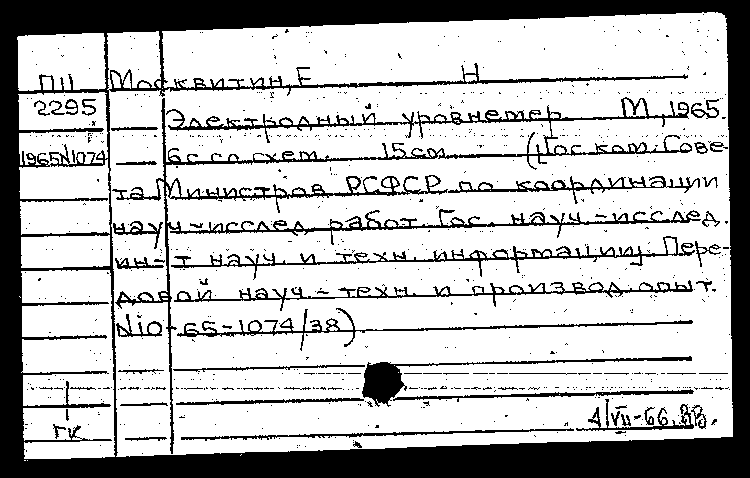 ПП Москвитин, Е Н
2295 Электродный уровнемер. М, 1965.
1965N1074 6с со схем. 15см (Гос. ком. Сове-
та Министров РСФСР по координации
науч-исслед. работ. Гос. науч-исслед.
ин-т науч. и техн. информации. Пере-
довой науч-техн. и производ. опыт.
N10-65-1074/38)
ГК 4/VII-66.